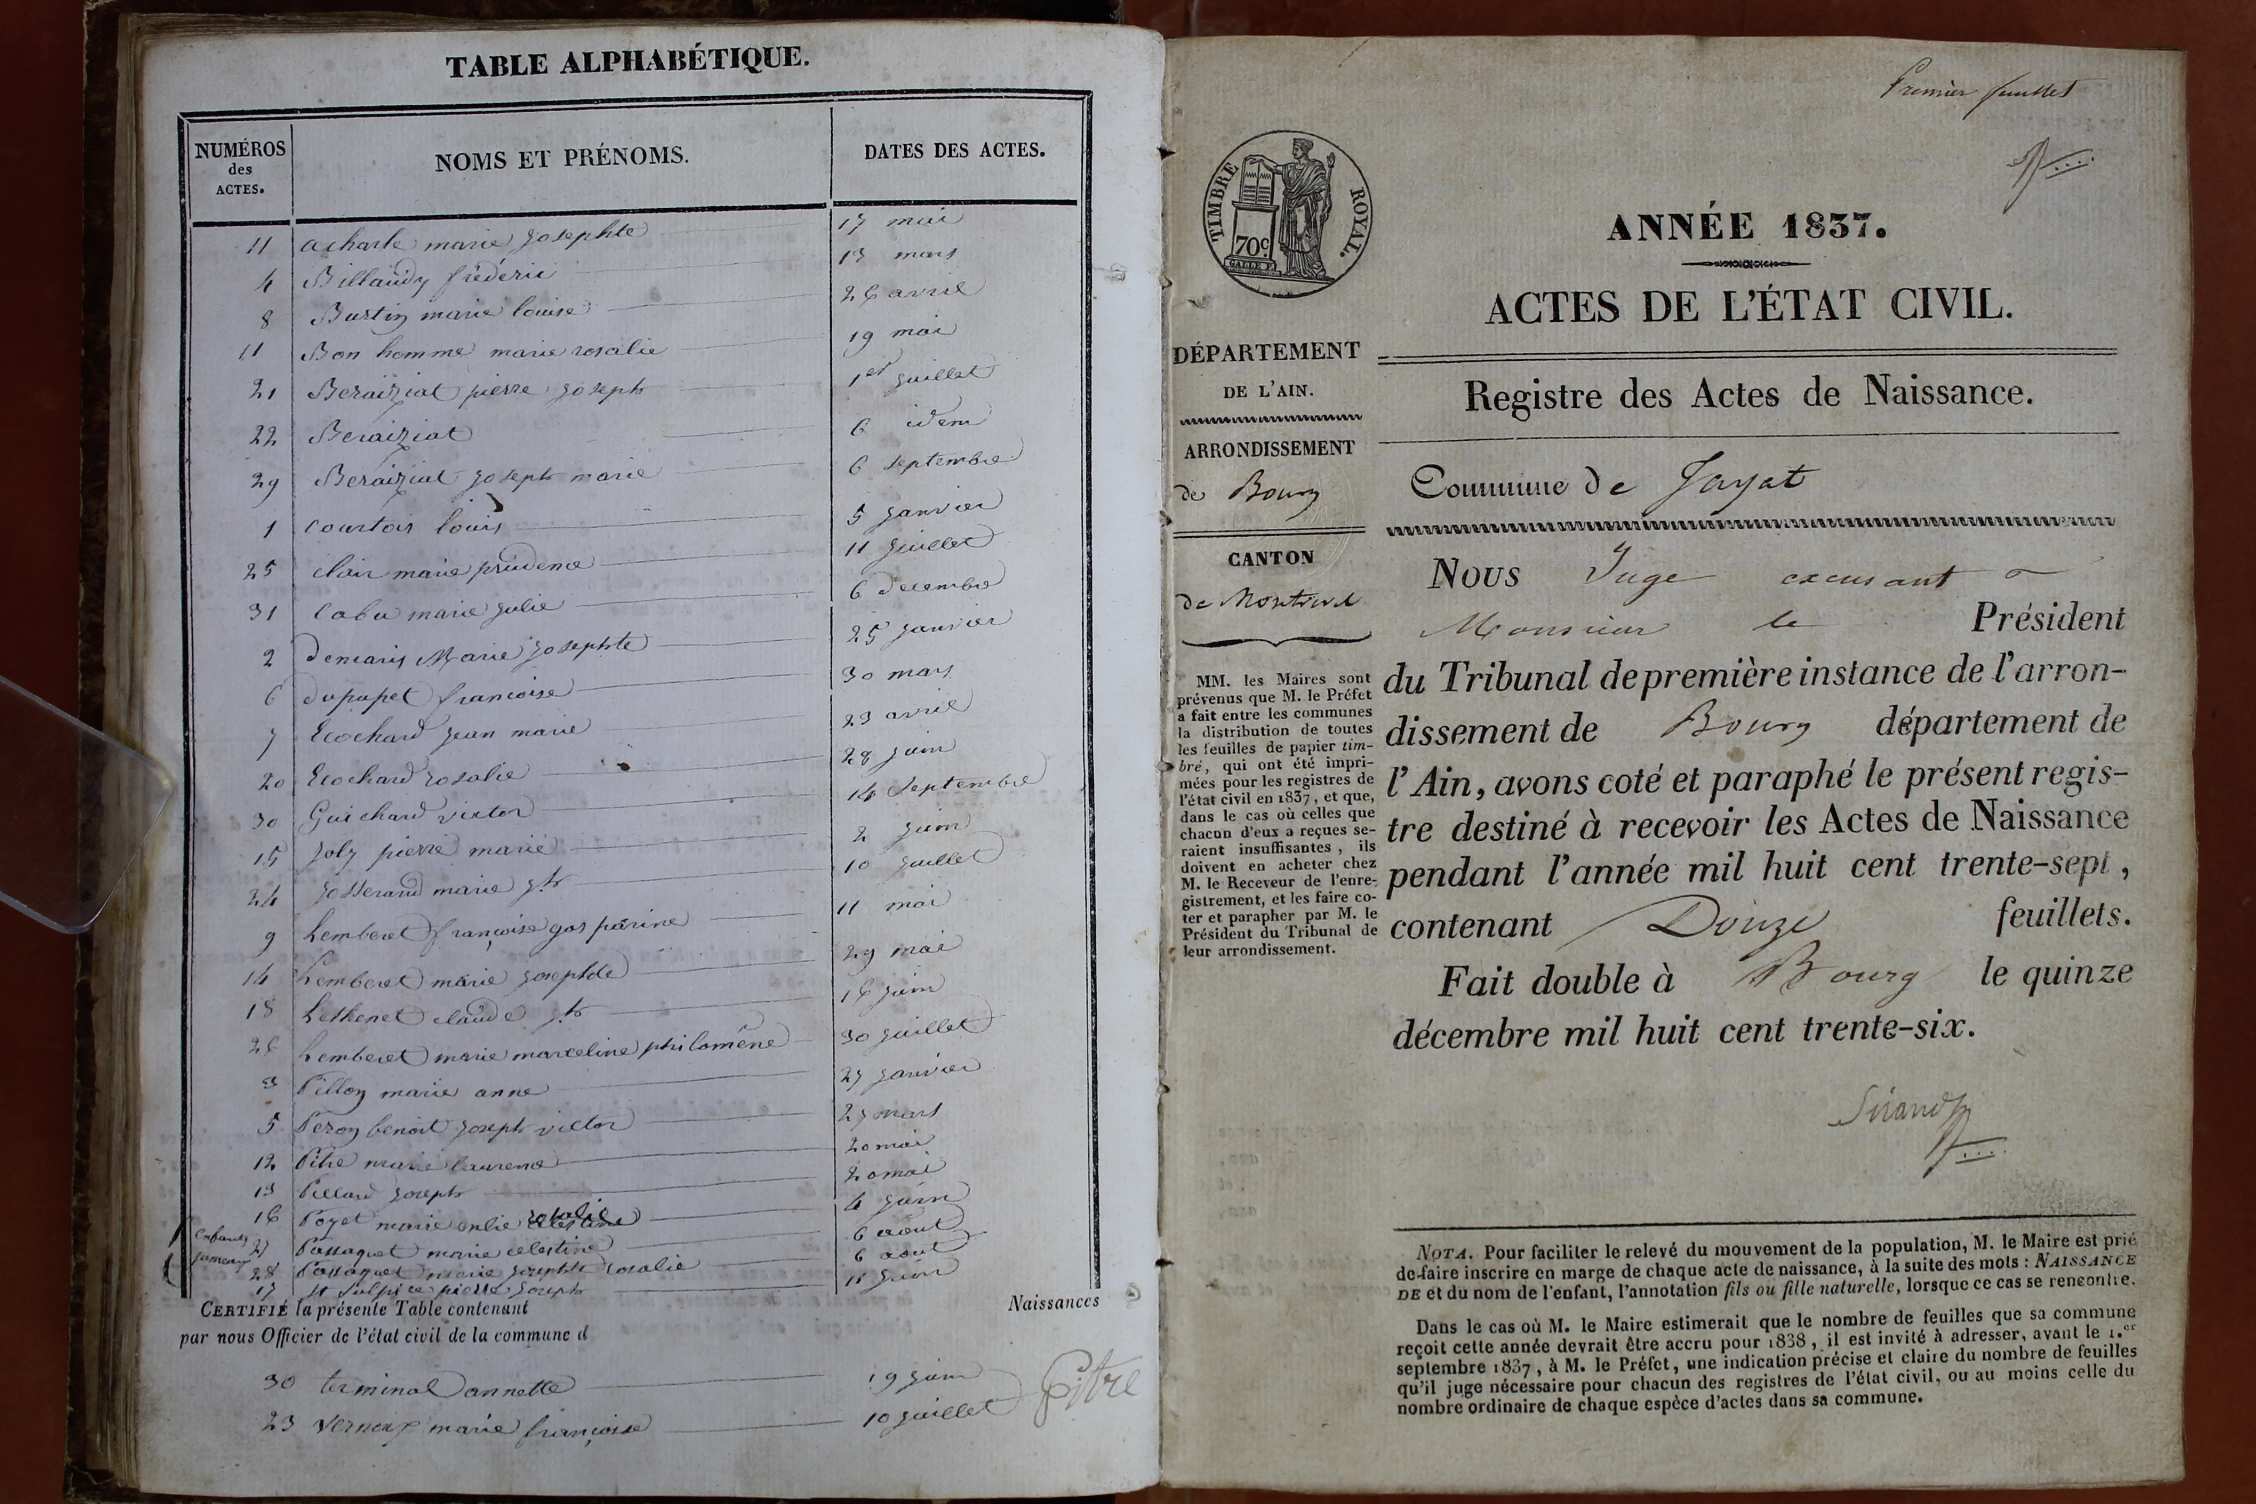 TABLE ALPHABÉTIQUE.
NUMÉROS des ACTES. NOMS ET PRÉNOMS. DATES DES ACTES.
11 acharle marie josephte 17 mai
4 Billaudy frédéric 13 mars
8 Burtin marie louise 26 avril
11 Bon homme marie rosalie 19 mai
21 Beraiziat pierre joseph 1er juillet
22 Beraiziat 6 idem
29 Beraiziat joseph marie 6 septembre
1 Courtois louis 5 janvier
25 clair marie prudence 11 juillet
31 Cabu marie julie 6 decembre
2 demaris Marie josephte 25 janvier
6 dupupet francoise 30 mars
7 Ecochard jean marie 23 avril
20 Ecochard rosalie 28 juin
30 Guichard victor 14 Septembre
15 Joly pierre marie 2 juin
24 Josserand marie jph 10 juillet
9 Lemberet françoise gasparine 11 mai
14 Lemberet marie josephte 29 mai
18 Lethenet claude jph 16 juin
26 Lemberet marie marceline philomène 30 juillet
3 Pillon marie anne 27 janvier
5 Peron benoit joseph victor 27 mars
12 Pitre marie laurence 20 mai
13 Pillard joseph 20 mai
16 Poyet marie rosalie 4 juin
enfants jumeaux
27 Passaquet marie celestine 6 aout
28 Passaquet marie josephte rosalie 6 aout
17 St Sulpice pierre joseph juin
CERTIFIÉ la présente Table contenant Naissances
par nous Officier de l'état civil de la commune d
30 terminal annette 19 juin
23 Vernoux marie françoise 10 juillet
Pitre
Premier feuillet
TIMBRE ROYAL.
70c.
ANNÉE 1837.
ACTES DE L'ÉTAT CIVIL.
DÉPARTEMENT
DE L'AIN.
Registre des Actes de Naissance.
ARRONDISSEMENT
de Bourg
Commune de Jayat
CANTON
de Montrevel
MM. les Maires sont
prévenus que M. le Préfet
a fait entre les communes
la distribution de toutes
les feuilles de papier tim-
bré, qui ont été impri-
mées pour les registres de
l'état civil en 1837, et que,
dans le cas où celles que
chacun d'eux a reçues se-
raient insuffisantes, ils
doivent en acheter chez
M. le Receveur de l'enre-
gistrement, et les faire co-
ter et parapher par M. le
Président du Tribunal de
leur arrondissement.
Nous Juge excusant
Monsieur le Président
du Tribunal de première instance de l'arron-
dissement de Bourg département de
l'Ain, avons coté et paraphé le présent regis-
tre destiné à recevoir les Actes de Naissance
pendant l'année mil huit cent trente-sept,
contenant Douze feuillets.
Fait double à Bourg le quinze
décembre mil huit cent trente-six.
Sirand
NOTA. Pour faciliter le relevé du mouvement de la population, M. le Maire est prié
de faire inscrire en marge de chaque acte de naissance, à la suite des mots : NAISSANCE
DE et du nom de l'enfant, l'annotation fils ou fille naturelle, lorsque ce cas se rencontre.
Dans le cas où M. le Maire estimerait que le nombre de feuilles que sa commune
reçoit cette année devrait être accru pour 1838, il est invité à adresser, avant le 1.er
septembre 1837, à M. le Préfet, une indication précise et claire du nombre de feuilles
qu'il juge nécessaire pour chacun des registres de l'état civil, ou au moins celle du
nombre ordinaire de chaque espèce d'actes dans sa commune.